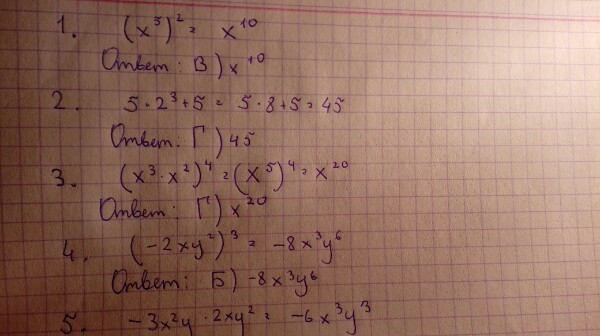 1. (x⁵)² = x¹⁰
Ответ: В) x¹⁰
2. 5·2³+5 = 5·8+5 = 45
Ответ: Г) 45
3. (x³·x²)⁴ = (x⁵)⁴ = x²⁰
Ответ: Г) x²⁰
4. (-2xy²)³ = -8x³y⁶
Ответ: Б) -8x³y⁶
5. -3x²y·2xy² = -6x³y³